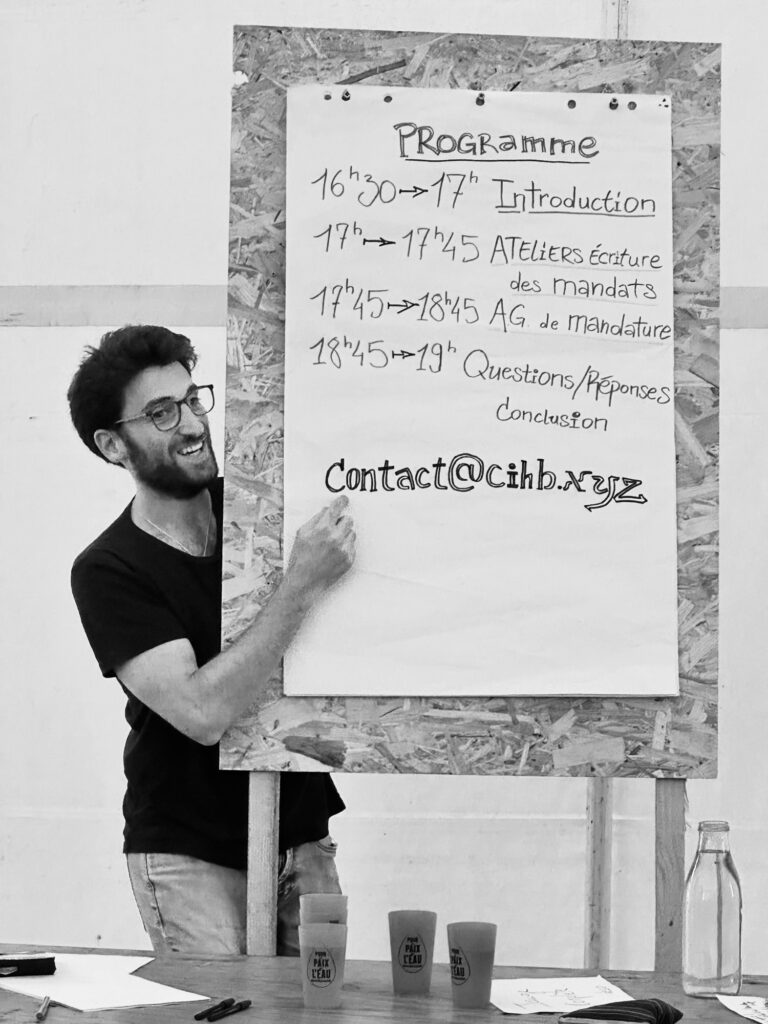 PROGRamme
16h30 → 17h Introduction
17h → 17h45 ATELIERS Écriture
des mandats
17h45 → 18h45 AG de mandature
18h45 → 19h Questions/Réponses
Conclusion
Contact@cihb.xyz
POUR
LA PAIX
L'EAU
POUR
LA PAIX
L'EAU